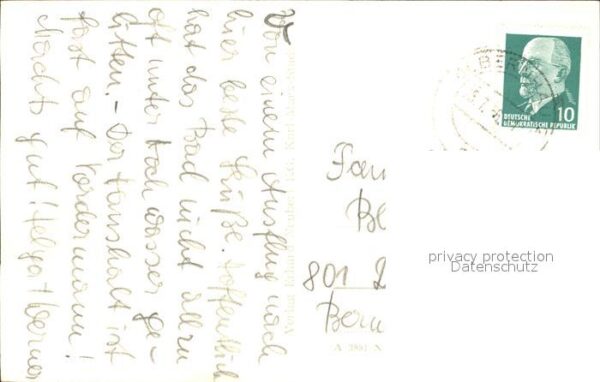 Von einem Ausflug nach
hier beste Grüße. Hoffentlich
hat das Bad nicht allzu
oft unter Hochwasser ge-
litten. - Der Haushalt ist
fast auf Vordermann!
Macht's gut! Helga + Werner
Verlag Erhard
A 2892 N
Fam
Bl
801
Bern
DEUTSCHE
DEMOKRATISCHE REPUBLIK
10
privacy protection
Datenschutz